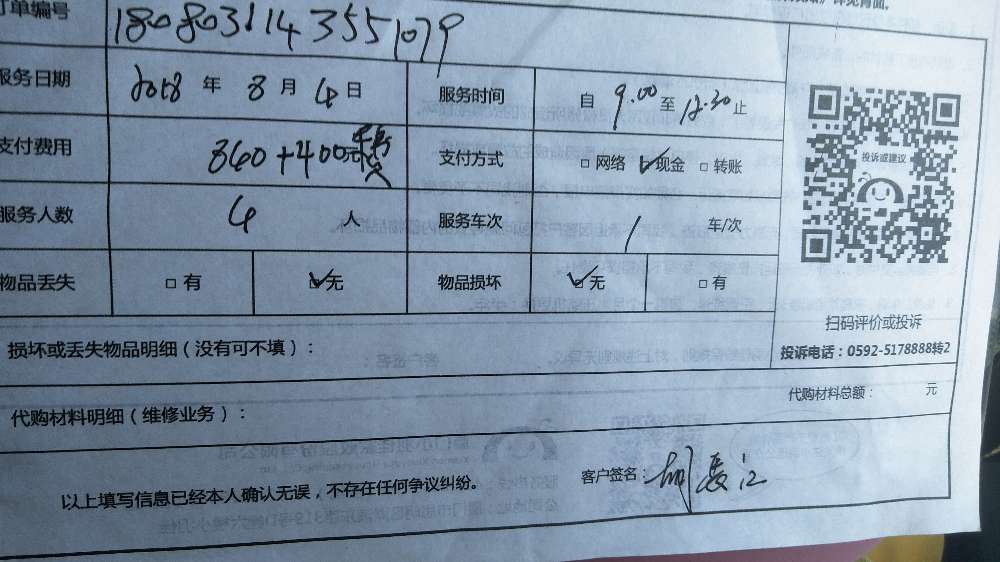 订单编号 1808031143551079
服务日期 2018 年 8 月 4 日 服务时间 自 9.00 至 12.30 止
支付费用 360+400元 支付方式 □网络 ☑现金 □转账
服务人数 4 人 服务车次 1 车/次
物品丢失 □有 ☑无 物品损坏 ☑无 □有
投诉或建议
扫码评价或投诉
投诉电话：0592-5178888转2
损坏或丢失物品明细（没有可不填）：
代购材料明细（维修业务）： 代购材料总额： 元
以上填写信息已经本人确认无误，不存在任何争议纠纷。 客户签名：胡